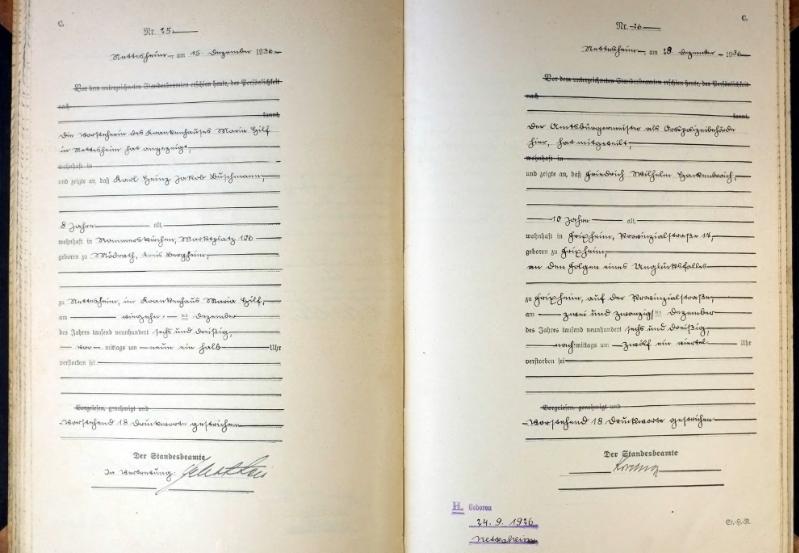 C.
Nr. 25
Nettesheim, am 15 Dezember 1936
Vor dem unterzeichneten Standesbeamten erschien heute, der Persönlichkeit
nach
kannt,
Die Vorsteherin des Krankenhauses Maria Hilf
in Nettesheim hat angezeigt,
wohnhaft in
und zeigte an, daß Karl Heinz Jakob Büschmann,
8 Jahre alt
wohnhaft in Rommerskirchen, Marktplatz
geboren zu Mödrath, Kreis Bergheim,
zu Nettesheim, im Krankenhaus Maria Hilf,
am vierzehn ten Dezember
des Jahres tausend neunhundert sechs und dreißig,
vor mittags um neun ein halb Uhr
verstorben sei
Vorgelesen, genehmigt und
Vorstehend 18 Druckworte gestrichen
Der Standesbeamte
In Vertretung:
C.
Nr. 26
Nettesheim, am 28 Dezember 1936
Vor dem unterzeichneten Standesbeamten erschien heute, der Persönlichkeit
nach
kannt,
Der Amtsbürgermeister als Ortspolizeibehörde
hier, hat mitgeteilt,
wohnhaft in
und zeigte an, daß Friedrich Wilhelm
10 Jahre alt
wohnhaft in Frixheim, Provinzialstraße 17,
geboren zu Frixheim,
an den Folgen eines Unglücksfalles
zu Frixheim, auf der Provinzialstraße,
am zwei und zwanzigs ten Dezember
des Jahres tausend neunhundert sechs und dreißig,
nach mittags um zwölf ein viertel Uhr
verstorben sei
Vorgelesen, genehmigt und
Vorstehend 18 Druckworte gestrichen
Der Standesbeamte
H. Geboren
24. 9. 1926
Nettesheim